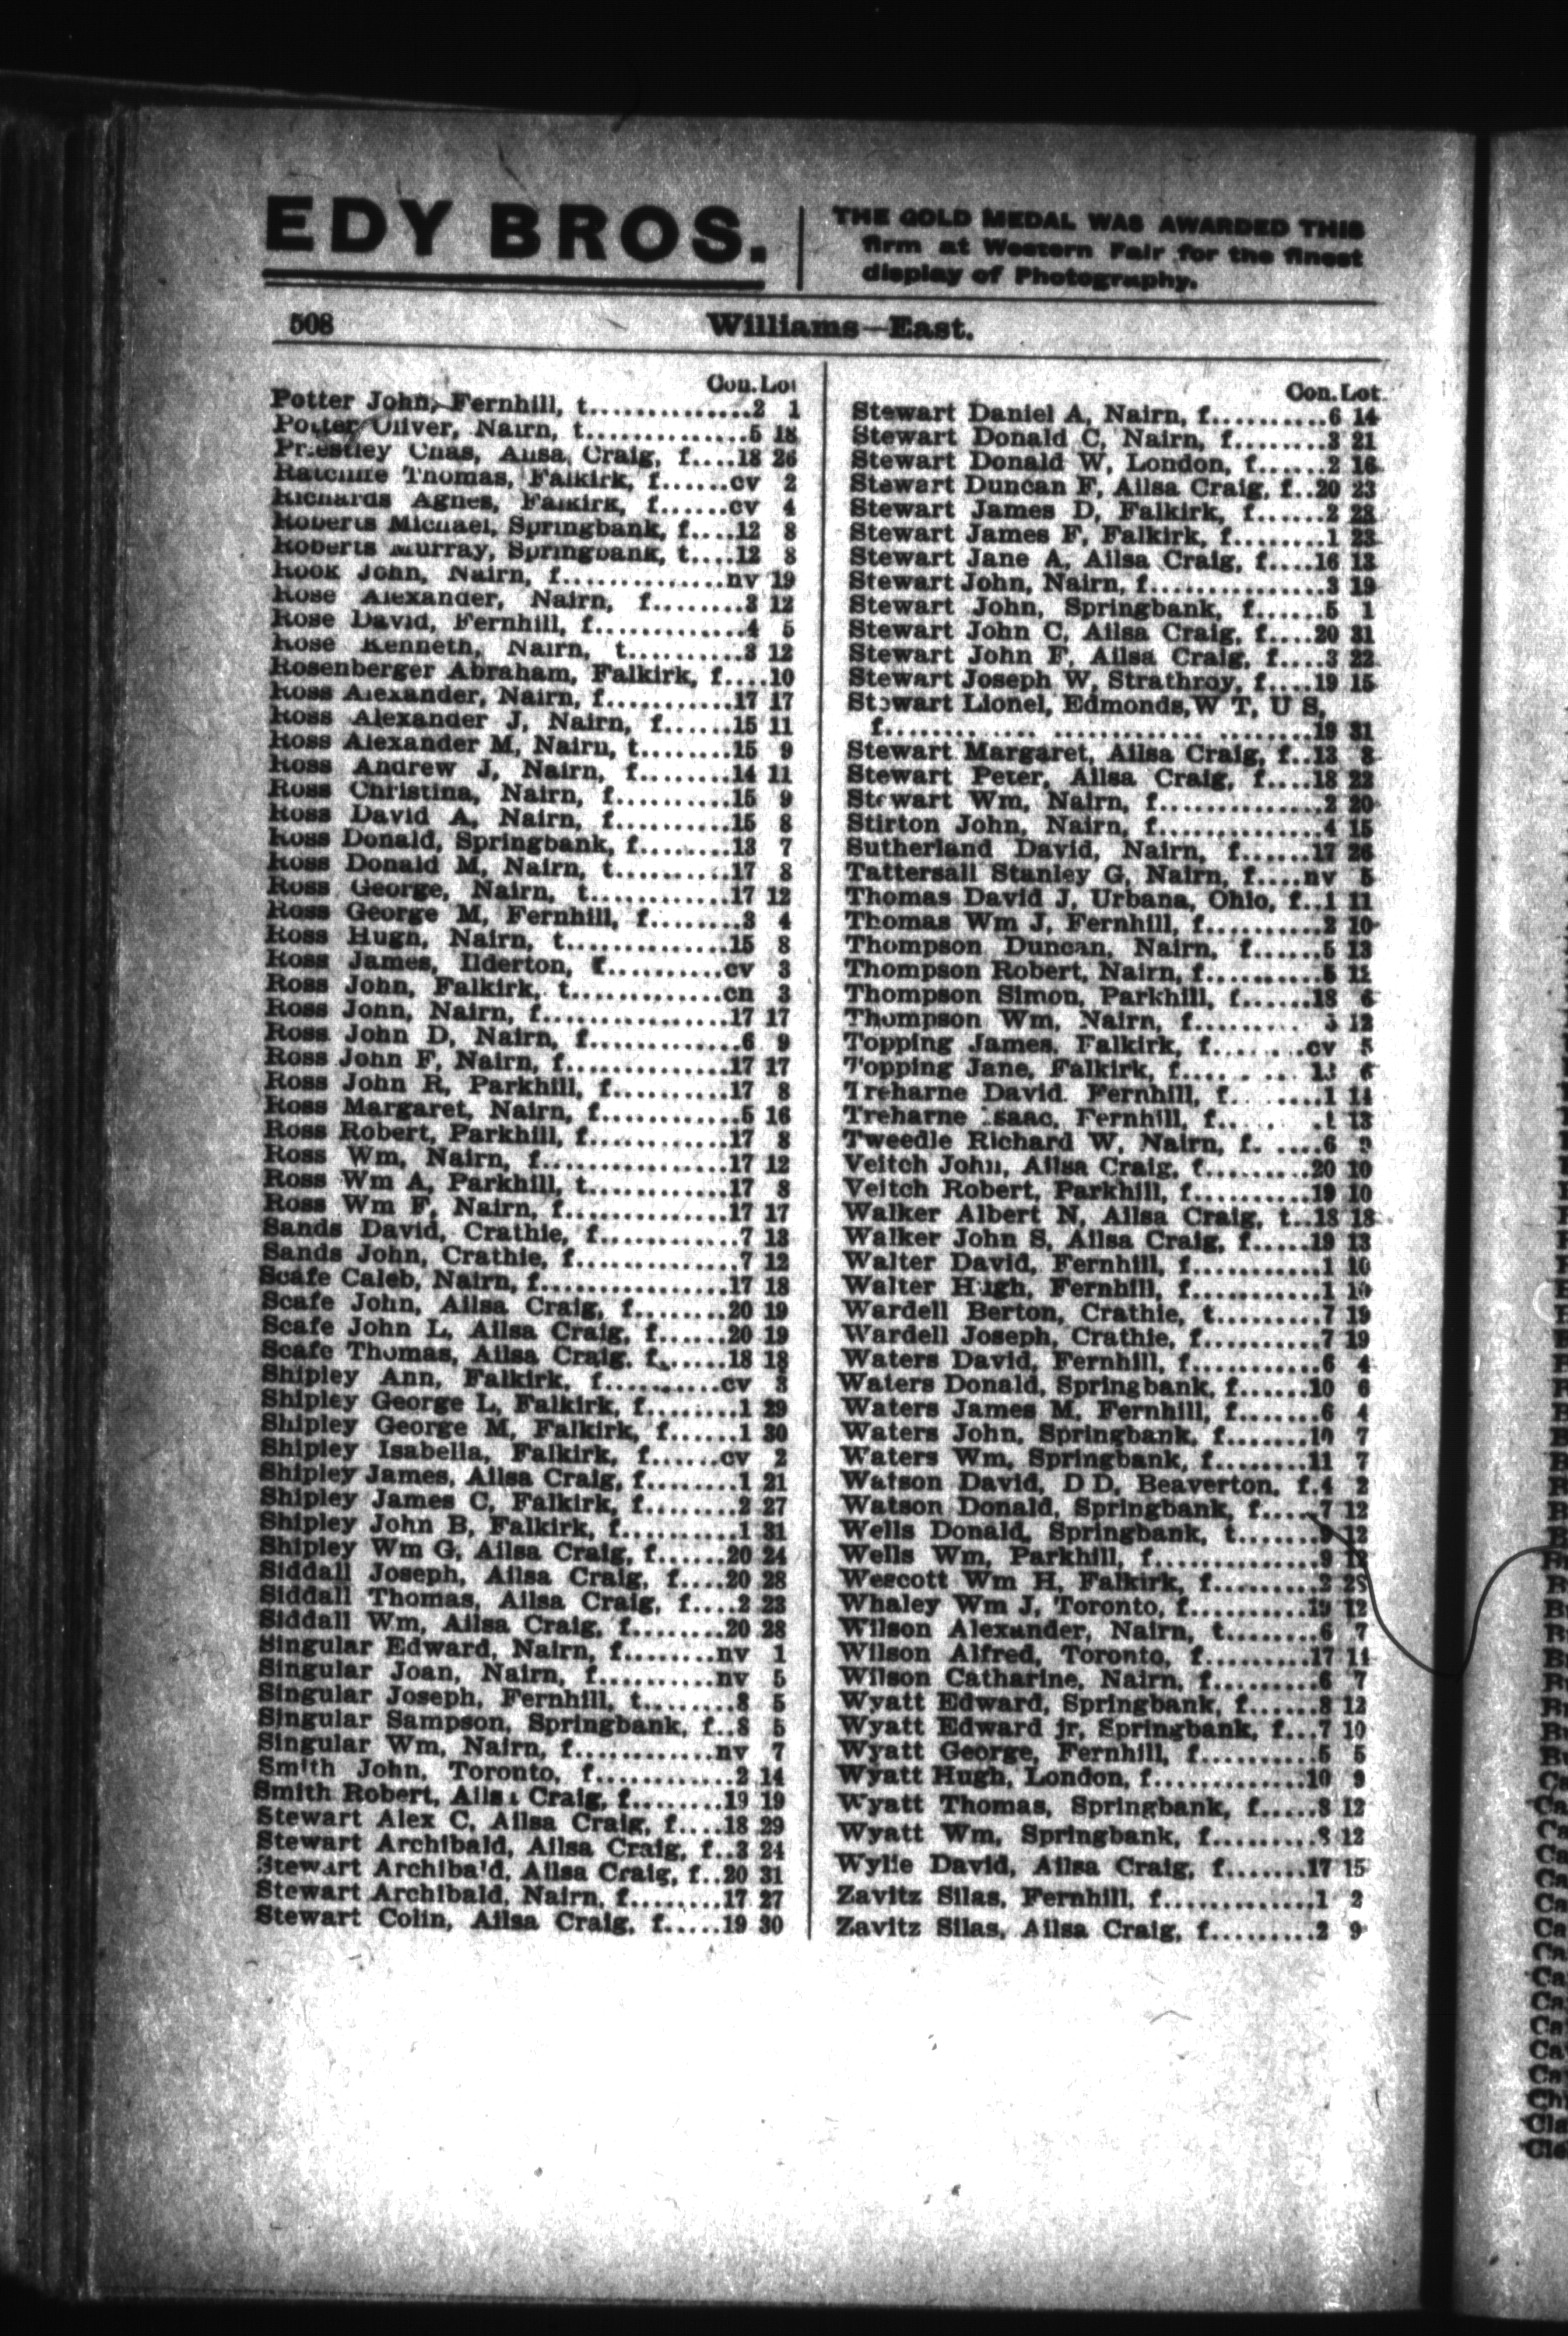 EDY BROS.
THE GOLD MEDAL WAS AWARDED THIS
firm at Western Fair for the finest
display of Photography.
508
Williams—East.
Con. Lot
Potter John, Fernhill, t...............2 1
Potter Oliver, Nairn, t...............5 18
Priestley Chas, Ailsa Craig, f....18 26
Ratcliffe Thomas, Falkirk, f......cv 2
Richards Agnes, Falkirk, f......cv 4
Roberts Michael, Springbank, f....12 8
Roberts Murray, Springbank, t....12 8
Rook John, Nairn, f...............nv 19
Rose Alexander, Nairn, f........3 12
Rose David, Fernhill, f.............4 5
Rose Kenneth, Nairn, t..........3 12
Rosenberger Abraham, Falkirk, f....10
Ross Alexander, Nairn, f...........17 17
Ross Alexander J, Nairn, f......15 11
Ross Alexander M, Nairn, t........15 9
Ross Andrew J, Nairn, f........14 11
Ross Christina, Nairn, f..........15 9
Ross David A, Nairn, f..........15 8
Ross Donald, Springbank, f........13 7
Ross Donald M, Nairn, t..........17 8
Ross George, Nairn, t............17 12
Ross George M, Fernhill, f........3 4
Ross Hugh, Nairn, t..............15 8
Ross James, Ilderton, f..........cv 3
Ross John, Falkirk, t.............cn 3
Ross John, Nairn, f................17 17
Ross John D, Nairn, f.............6 9
Ross John F, Nairn, f..............17 17
Ross John R, Parkhill, f..........17 8
Ross Margaret, Nairn, f............5 16
Ross Robert, Parkhill, f............17 8
Ross Wm, Nairn, f................17 12
Ross Wm A, Parkhill, t............17 8
Ross Wm F, Nairn, f..............17 17
Sands David, Crathie, f............7 13
Sands John, Crathie, f..............7 12
Scafe Caleb, Nairn, f................17 18
Scafe John, Ailsa Craig, f........20 19
Scafe John L, Ailsa Craig, f......20 19
Scafe Thomas, Ailsa Craig, f.......18 18
Shipley Ann, Falkirk, f..........cv 3
Shipley George L, Falkirk, f........1 29
Shipley George M, Falkirk, f......1 30
Shipley Isabella, Falkirk, f......cv 2
Shipley James, Ailsa Craig, f........1 21
Shipley James C, Falkirk, f........2 27
Shipley John B, Falkirk, f..........1 31
Shipley Wm G, Ailsa Craig, f......20 24
Siddall Joseph, Ailsa Craig, f....20 28
Siddall Thomas, Ailsa Craig, f....2 23
Siddall Wm, Ailsa Craig, f........20 28
Singular Edward, Nairn, f........nv 1
Singular Joan, Nairn, f..........nv 5
Singular Joseph, Fernhill, t........8 5
Singular Sampson, Springbank, f..8 5
Singular Wm, Nairn, f............nv 7
Smith John, Toronto, f............2 14
Smith Robert, Ailsa Craig, f........19 19
Stewart Alex C, Ailsa Craig, f....18 29
Stewart Archibald, Ailsa Craig, f..3 24
Stewart Archibald, Ailsa Craig, f..20 31
Stewart Archibald, Nairn, f........17 27
Stewart Colin, Ailsa Craig, f.....19 30
Con. Lot.
Stewart Daniel A, Nairn, f..........6 14
Stewart Donald C, Nairn, f........3 21
Stewart Donald W, London, f......2 16
Stewart Duncan F, Ailsa Craig, f..20 23
Stewart James D, Falkirk, f......2 28
Stewart James F, Falkirk, f........1 23
Stewart Jane A, Ailsa Craig, f....16 13
Stewart John, Nairn, f...............3 19
Stewart John, Springbank, f......5 1
Stewart John C, Ailsa Craig, f....20 31
Stewart John F, Ailsa Craig, f....3 22
Stewart Joseph W, Strathroy, f....19 15
Stewart Lionel, Edmonds, W T, U S,
f....................................19 31
Stewart Margaret, Ailsa Craig, f..13 8
Stewart Peter, Ailsa Craig, f....18 22
Stewart Wm, Nairn, f..............2 20
Stirton John, Nairn, f..............4 15
Sutherland David, Nairn, f......17 26
Tattersall Stanley G, Nairn, f....nv 5
Thomas David J, Urbana, Ohio, f..1 11
Thomas Wm J, Fernhill, f..........2 10
Thompson Duncan, Nairn, f......5 13
Thompson Robert, Nairn, f..........5 11
Thompson Simon, Parkhill, f......18 6
Thompson Wm, Nairn, f.......... 3 12
Topping James, Falkirk, f........cv 5
Topping Jane, Falkirk, f.......... 13 6
Treharne David, Fernhill, f........1 14
Treharne Isaac, Fernhill, f..... .1 13
Tweedle Richard W, Nairn, f. ....6 9
Veitch John, Ailsa Craig, f.........20 10
Veitch Robert, Parkhill, f..........19 10
Walker Albert N, Ailsa Craig, t..18 18
Walker John S, Ailsa Craig, f.....19 13
Walter David, Fernhill, f...........1 10
Walter Hugh, Fernhill, f...........1 10
Wardell Berton, Crathie, t.........7 19
Wardell Joseph, Crathie, f..........7 19
Waters David, Fernhill, f...........6 4
Waters Donald, Springbank, f......10 6
Waters James M, Fernhill, f.......6 4
Waters John, Springbank, f.......10 7
Waters Wm, Springbank, f........11 7
Watson David, D D, Beaverton, f.4 2
Watson Donald, Springbank, f.....7 12
Wells Donald, Springbank, t.......9 12
Wells Wm, Parkhill, f..............9 12
Wescott Wm H, Falkirk, f.........2 28
Whaley Wm J, Toronto, f..........19 12
Wilson Alexander, Nairn, t........6 7
Wilson Alfred, Toronto, f.........17 11
Wilson Catharine, Nairn, f.........6 7
Wyatt Edward, Springbank, f......8 12
Wyatt Edward jr, Springbank, f...7 10
Wyatt George, Fernhill, f..........5 5
Wyatt Hugh, London, f.............10 9
Wyatt Thomas, Springbank, f.....8 12
Wyatt Wm, Springbank, f.........8 12
Wylie David, Ailsa Craig, f.......17 15
Zavitz Silas, Fernhill, f.............1 2
Zavitz Silas, Ailsa Craig, f.........2 9